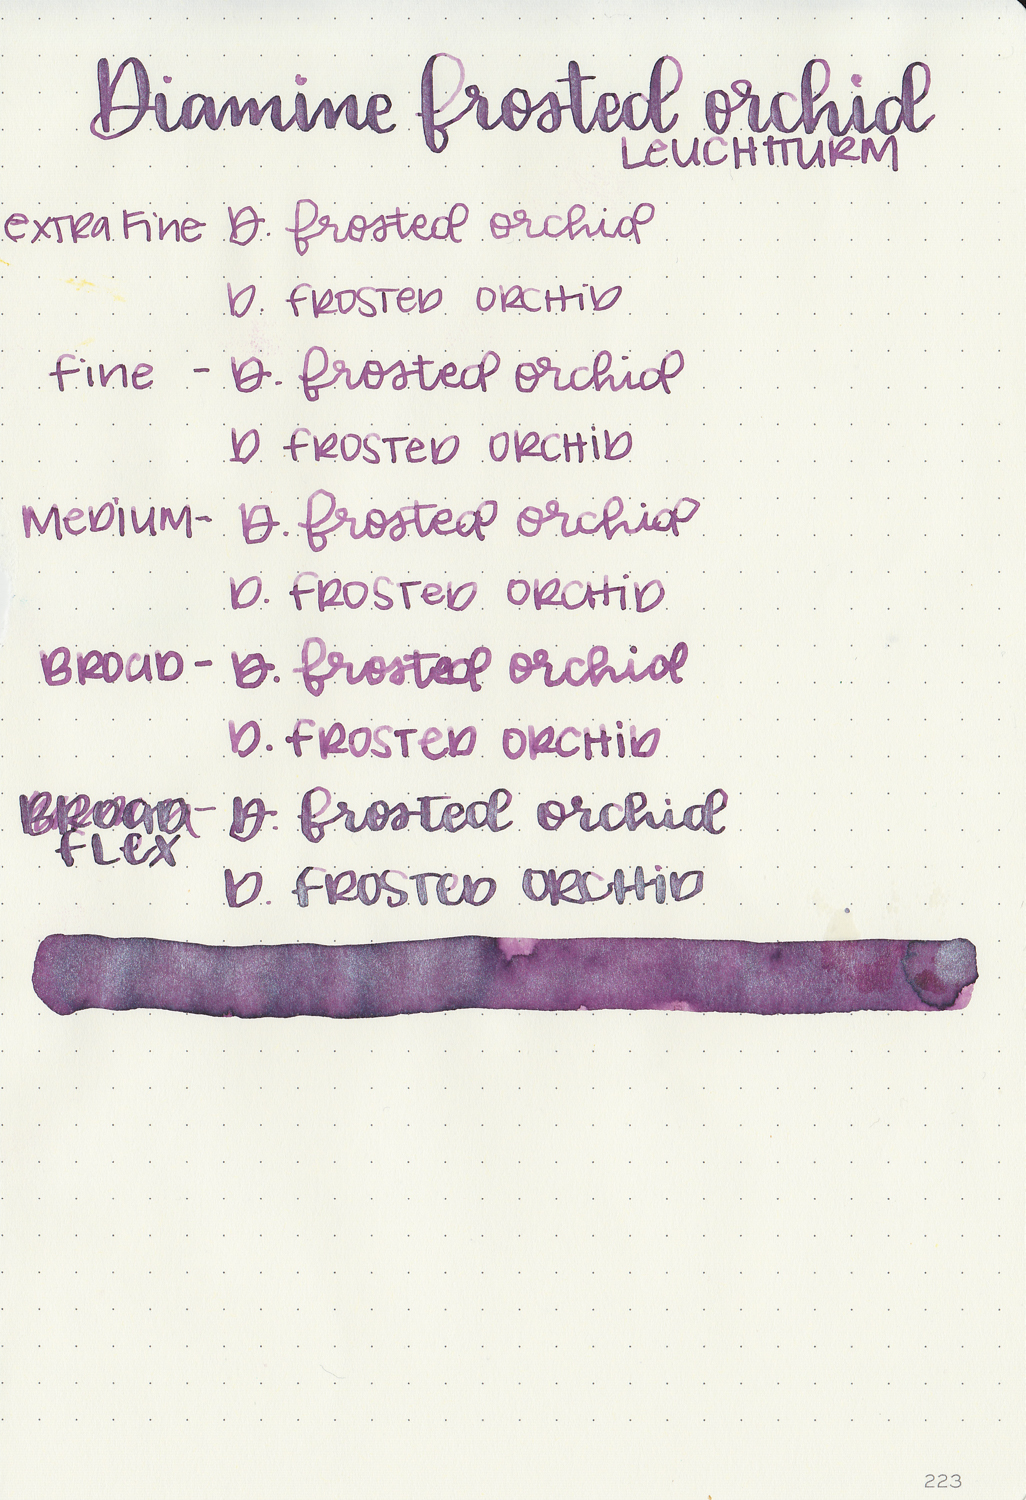 Diamine frosted orchid
LEUCHTTURM
extra Fine D. frosted orchid
D. FROSTED ORCHiD
fine - D. frosted orchid
D FROSTED ORCHiD
MEDiUM- D. frosted orchid
D. FROSTED ORCHiD
BROAD - D. frosted orchid
D. FROSTED ORCHiD
BROAD - D. frosted orchid
FLEX
D. FROSTED ORCHiD
223